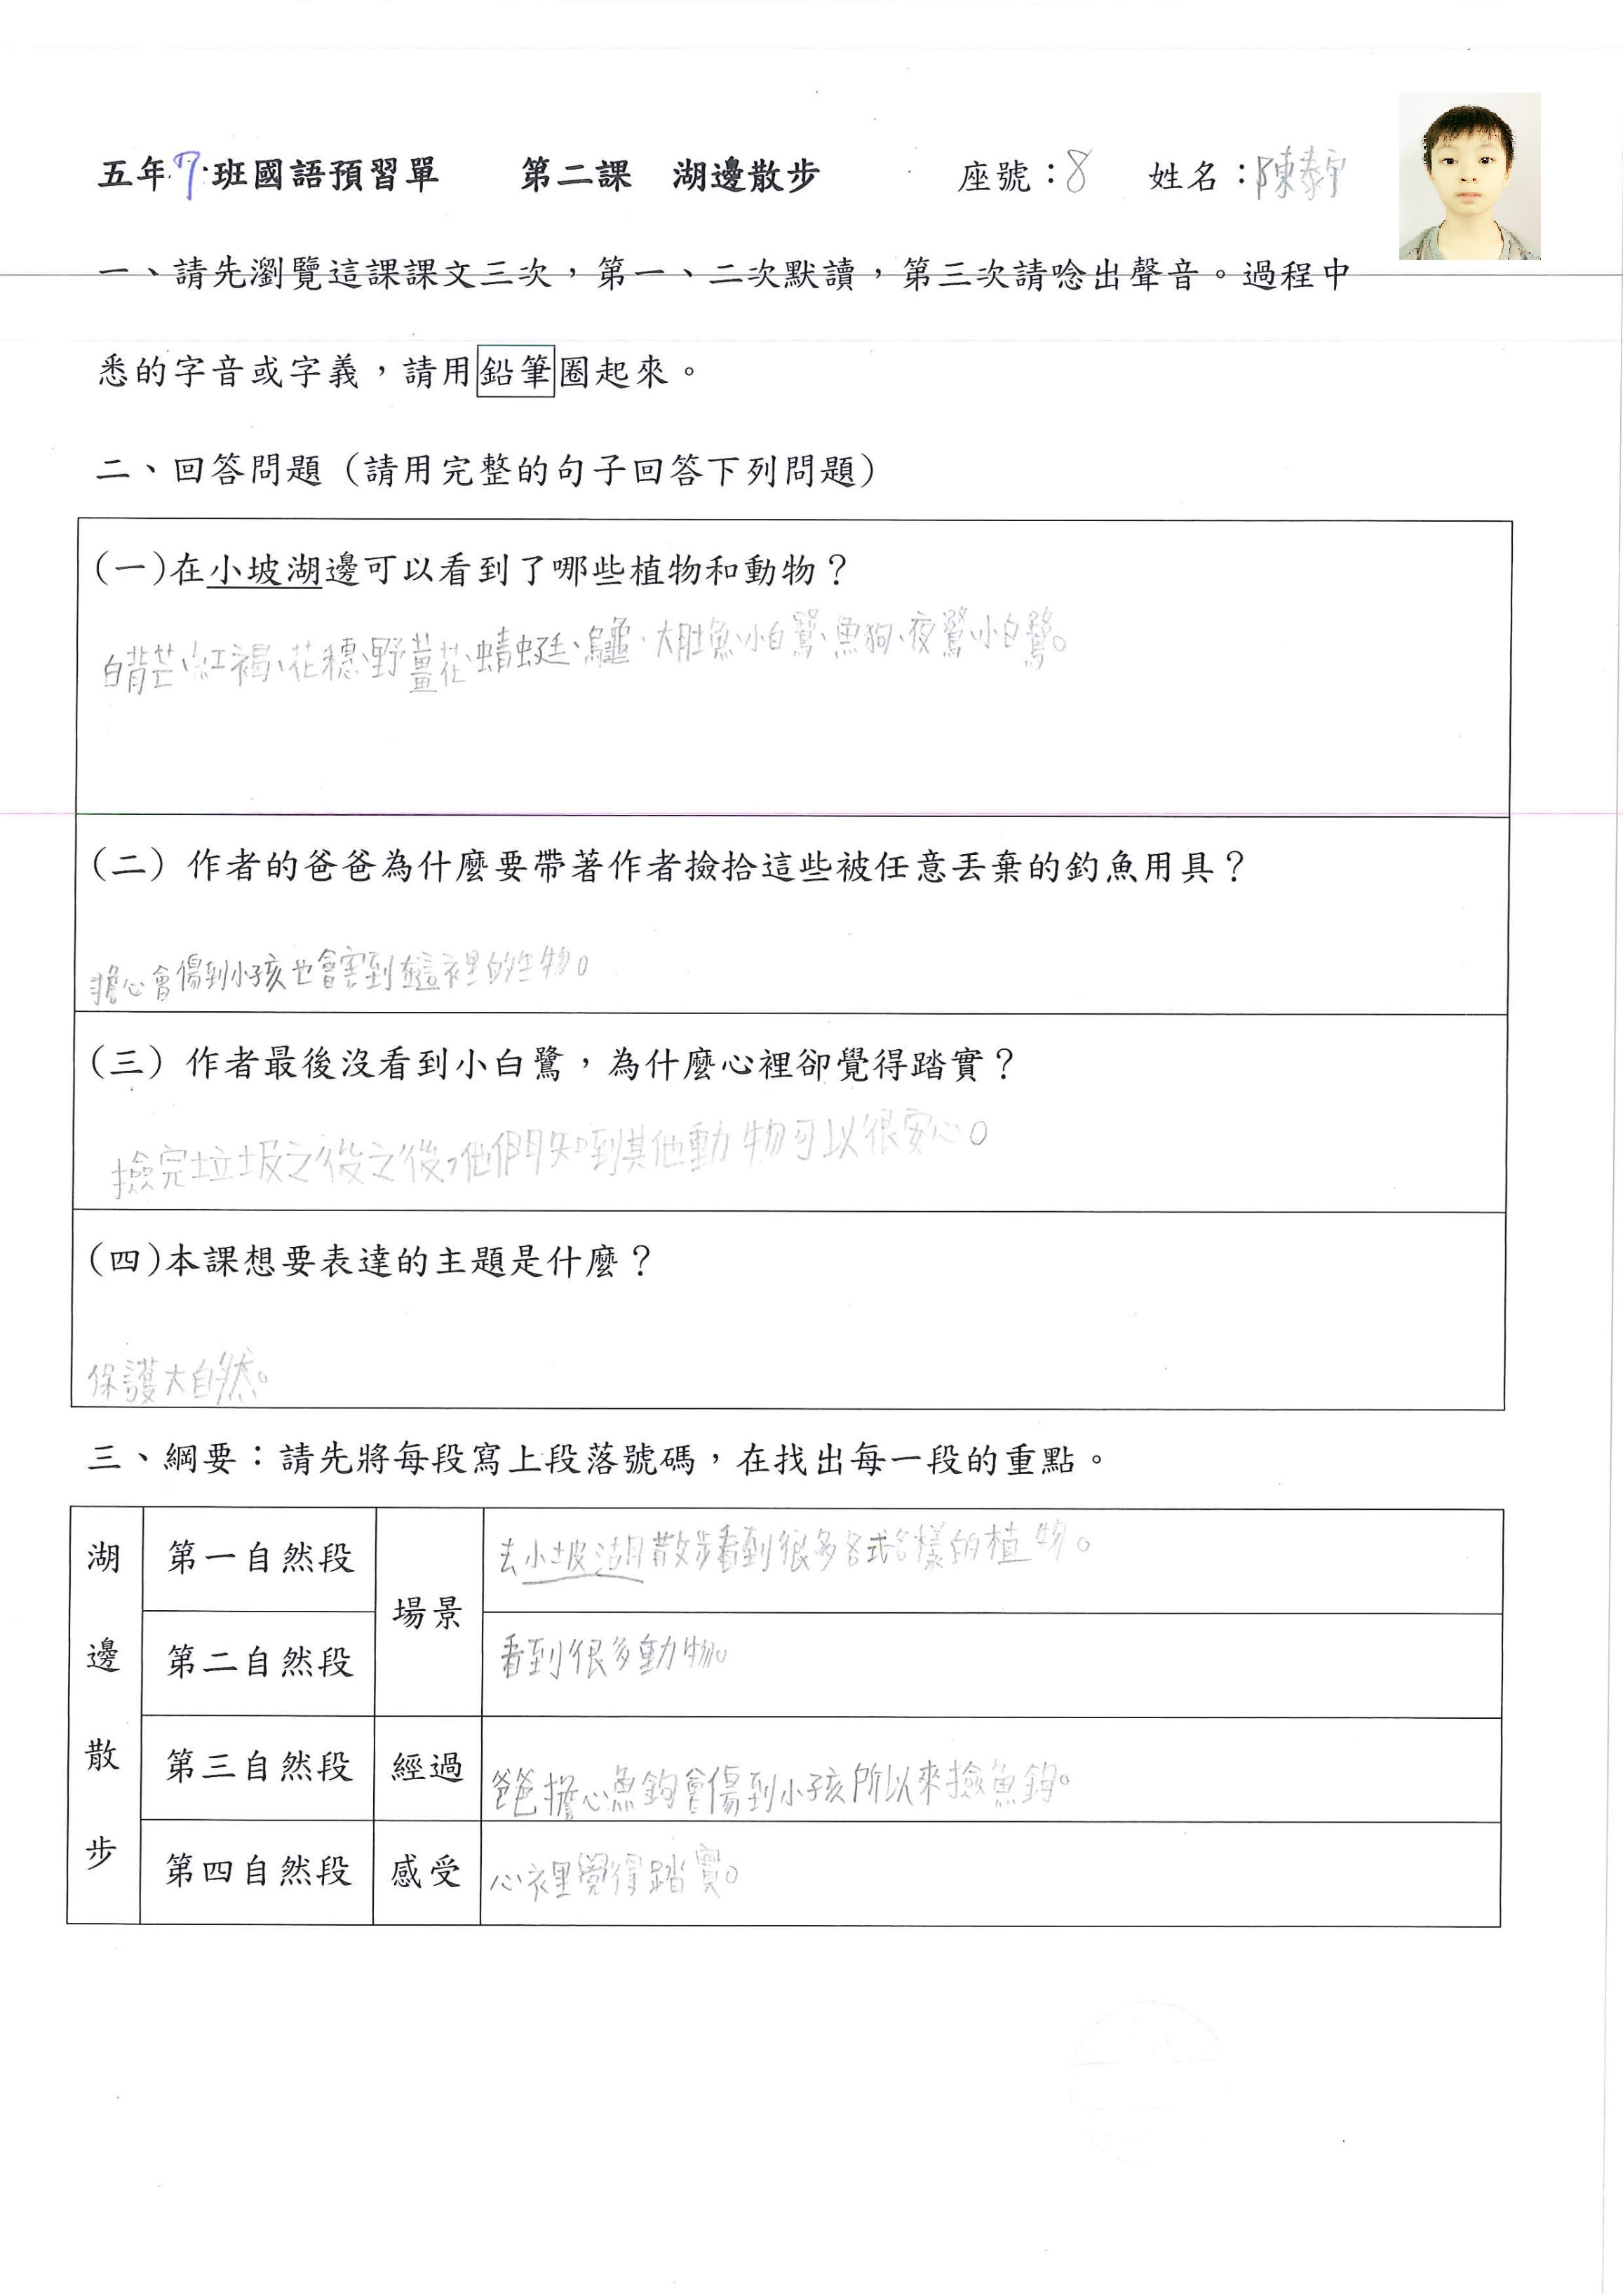 五年7班國語預習單 第二課 湖邊散步 座號：8 姓名：陳泰宇
一、請先瀏覽這課課文三次，第一、二次默讀，第三次請唸出聲音。過程中
悉的字音或字義，請用鉛筆圈起來。
二、回答問題（請用完整的句子回答下列問題）
(一)在小坡湖邊可以看到了哪些植物和動物？
白背芒、紅褐、花穗、野薑花、蜻蜓、烏龜、大肚魚、小白鷺、魚狗、夜鷺、小白鷺。
(二) 作者的爸爸為什麼要帶著作者撿拾這些被任意丟棄的釣魚用具？
擔心會傷到小孩也會害到這裡的生物。
(三) 作者最後沒看到小白鷺，為什麼心裡卻覺得踏實？
撿完垃圾之後之後，他們知到其他動物可以很安心。
(四)本課想要表達的主題是什麼？
保護大自然。
三、綱要：請先將每段寫上段落號碼，在找出每一段的重點。
湖邊散步
第一自然段 場景 去小坡湖散步看到很多各式各樣的植物。
第二自然段 看到很多動物。
第三自然段 經過 爸爸擔心魚鉤會傷到小孩所以來撿魚鉤。
第四自然段 感受 心裡覺得踏實。